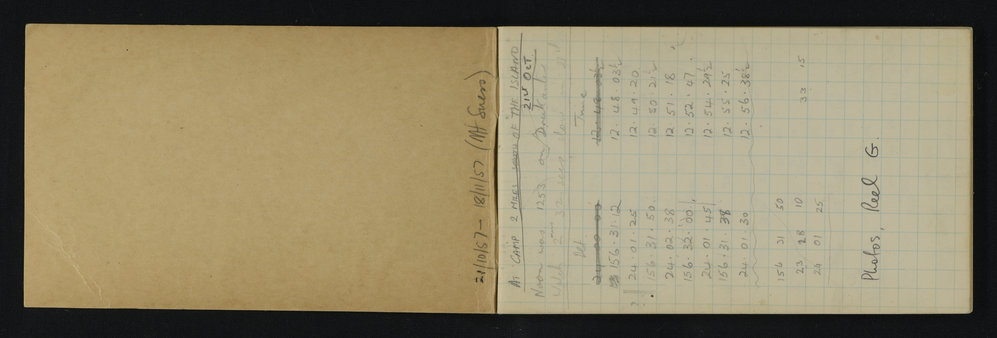 21/10/57 - 18/11/57 (Mt Suess)
AT CAMP 2 MILES SOUTH OF THE ISLAND
21st OCT
Noon was 1253 on
Watch 2 32 slow
Det Time
24 00 00 12.48.03½
156.31.12 12.48.03½
24.01.25 12.49.20
156 31.50 12.50.21½
24.02.38 12.51.18
156.32.00 12.52.47
24.01.45 12.54.29½
156.31.38 12.55.25
24.01.30 12.56.38½
156 31 50
23 28 10 33 15
24 01 25
Photos, Reel G.